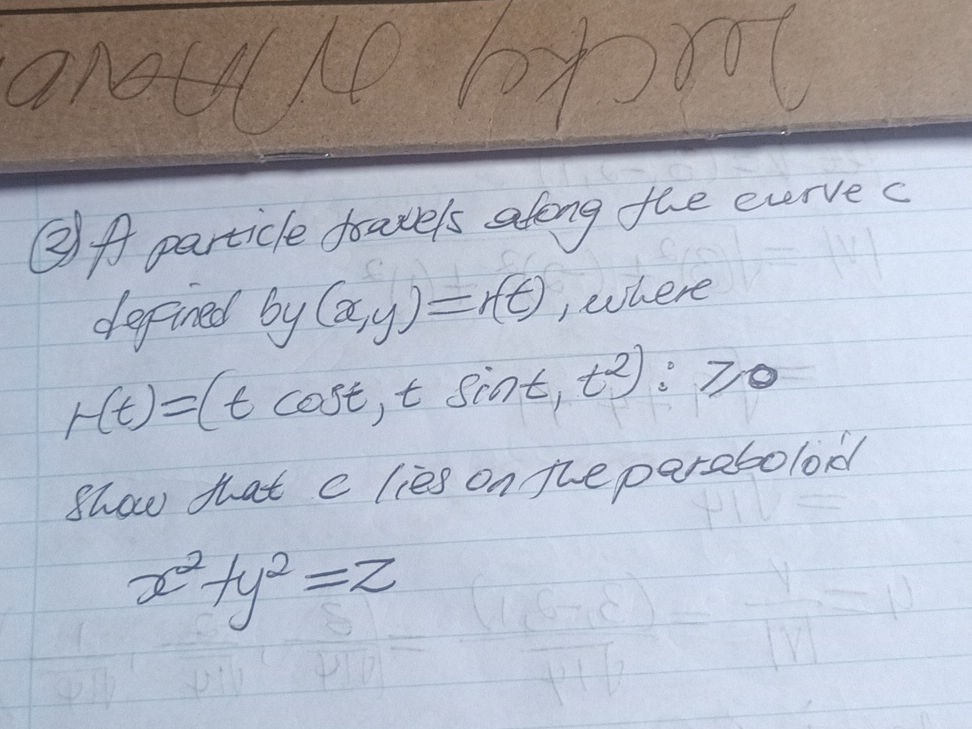 ② A particle travels along the curve c
defined by (x,y)=r(t), where
r(t)=(t cost, t sint, t²): ≥0
show that c lies on the paraboloid
x²+y²=z